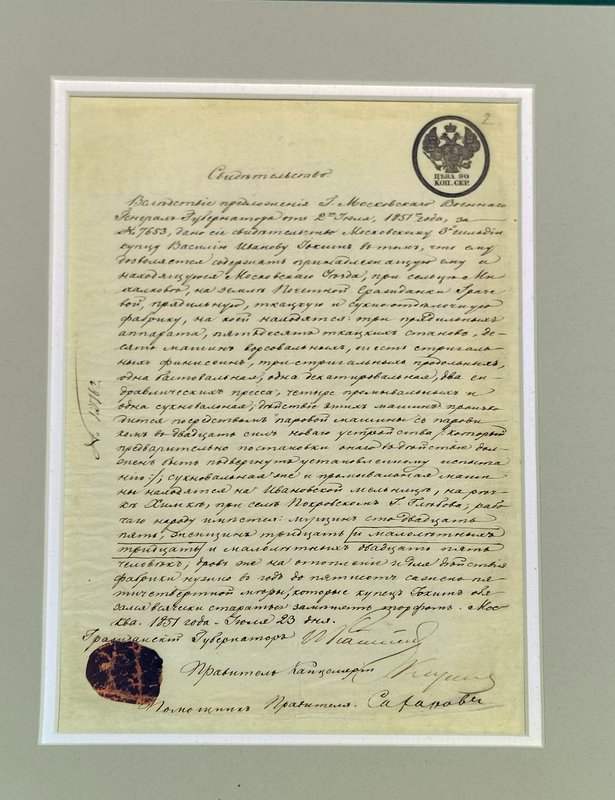 2
ЦѢНА 90
КОП. СЕР.
Свидѣтельство
Вслѣдствіе предложенія Г. Московскаго Военнаго
Генералъ-Губернатора отъ 2го Іюля, 1851го года, за
№ 7653, дано сіе свидѣтельство Московскому 3й гильдіи
купцу Василію Иванову в томъ, что ему
дозволяется содержать принадлежащую ему и
находящуюся Московскаго Уѣзда, при сельцѣ Ми-
халковѣ, на землѣ Почетной Гражданки Граче-
вой, прядильную, ткацкую и сукноотдѣлочную
фабрику, на коей находятся: три прядильныхъ
аппарата, пятьдесятъ ткацкихъ становъ, де-
сять машинъ ворсовальныхъ, шесть стригаль-
ныхъ, три стригальныхъ продольныхъ,
одна, одна декатировальная, два ги-
дравлическихъ пресса, четыре промывальныхъ и
одна сукновальная; дѣйствіе этихъ машинъ произво-
дится посредствомъ паровой машины съ парови-
комъ въ двадцать силъ новаго устройства /: который
предварительно постановки онаго въ дѣйствіе дол-
женъ быть подвергнутъ установленному испыта-
нію :/; сукновальная же и промывальная маши-
ны находятся на Ивановской мельницѣ, на рѣ-
кѣ Химкѣ, при селѣ Покровскомъ Г. Глѣбова; рабо-
чаго народу имѣется: мущинъ сто двадцать
пять, женщинъ тридцать и малолѣтныхъ
тридцать и малолѣтныхъ двадцать пять
человѣкъ; дровъ же на отопленіе и для дѣйствія
фабрики нужно въ годъ до пятисотъ саженъ пя-
тичетвертной мѣры, которые купецъ обя-
зался всячески стараться замѣнять торфомъ. Мос-
ква. 1851 года Іюля 23 дня.
Гражданскій Губернаторъ
Правитель Канцеляріи
Помощникъ Правителя